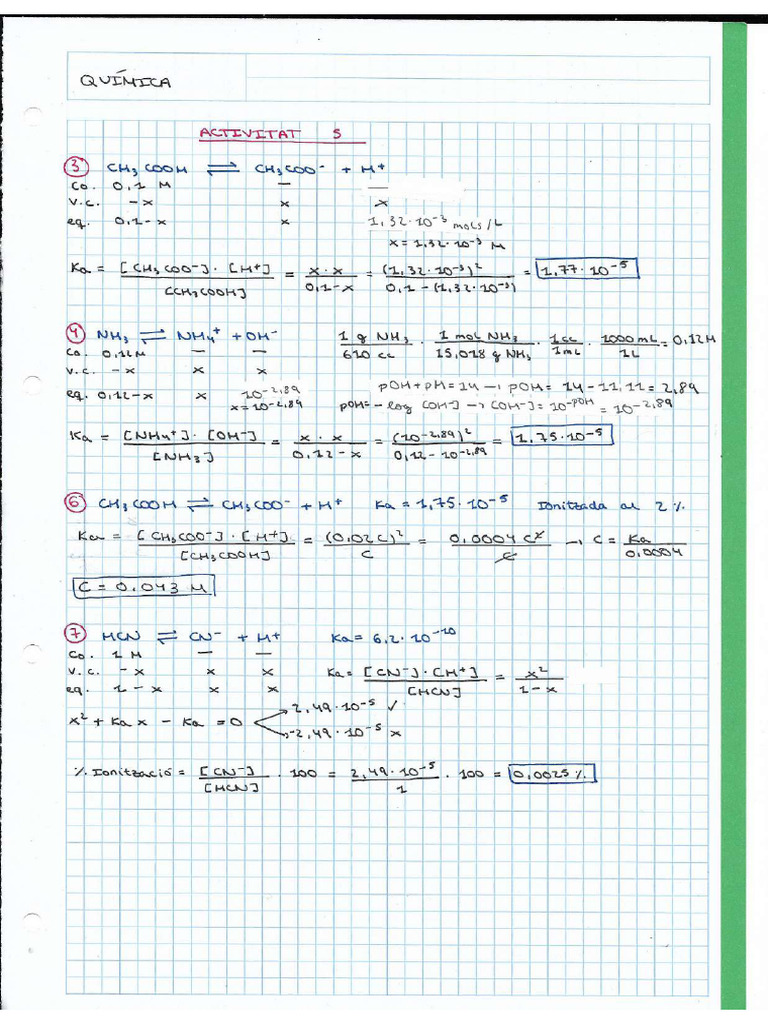 QUÍMICA
ACTIVITAT 5
③ CH₃COOH ⇌ CH₃COO⁻ + H⁺
Co. 0,1 M — —
V.C. -x x x
eq. 0,1-x x 1,32·10⁻³ mols/L
x = 1,32·10⁻³ M
Ka = [CH₃COO⁻]·[H⁺] / [CH₃COOH] = x·x / 0,1-x = (1,32·10⁻³)² / 0,1-(1,32·10⁻³) = 1,77·10⁻⁵
④ NH₃ ⇌ NH₄⁺ + OH⁻ 1 g NH₃ / 610 cc · 1 mol NH₃ / 15,018 g NH₃ · 1cc / 1mL · 1000 mL / 1L = 0,12M
Co. 0,12M — —
V.C. -x x x
eq. 0,12-x x 10⁻²·⁸⁹ pOH+pH=14 → pOH = 14-11,11 = 2,89
x=10⁻²·⁸⁹ pOH=-log [OH-] → [OH-]=10⁻ᵖᴼᴴ = 10⁻²·⁸⁹
Ka = [NH₄⁺]·[OH⁻] / [NH₃] = x·x / 0,12-x = (10⁻²·⁸⁹)² / 0,12-10⁻²·⁸⁹ = 1,75·10⁻⁵
⑥ CH₃COOH ⇌ CH₃COO⁻ + H⁺ Ka = 1,75·10⁻⁵ Ionitzada al 2%
Ka = [CH₃COO⁻]·[H⁺] / [CH₃COOH] = (0,02C)² / C = 0,0004 C² / C → C = Ka / 0,0004
C = 0,043 M
⑦ HCN ⇌ CN⁻ + H⁺ Ka = 6,2·10⁻¹⁰
Co. 1 M — —
V.C. -x x x Ka = [CN⁻]·[H⁺] / [HCN] = x² / 1-x
eq. 1-x x x
x² + Ka x - Ka = 0 2,49·10⁻⁵ ✓
-2,49·10⁻⁵ x
% Ionització = [CN⁻] / [HCN] · 100 = 2,49·10⁻⁵ / 1 · 100 = 0,0025 %